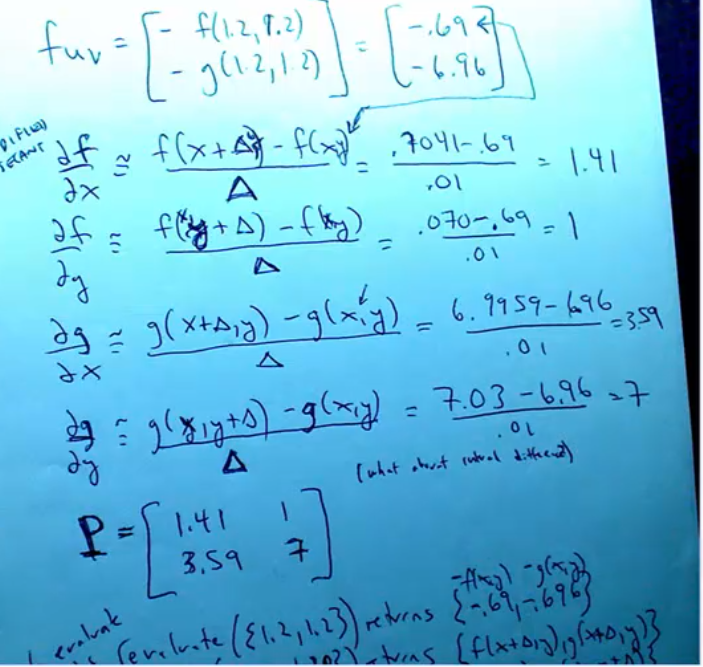 fuv = [ - f(1.2, 1.2) ; - g(1.2, 1.2) ] = [ -.69 ; -6.96 ]
∂f/∂x ≅ (f(x+Δ,y) - f(x,y))/Δ = (.7041-.69)/.01 = 1.41
∂f/∂y ≅ (f(x,y+Δ) - f(x,y))/Δ = (.070-.69)/.01 = 1
∂g/∂x ≅ (g(x+Δ,y) - g(x,y))/Δ = (6.9959-6.96)/.01 = 3.59
∂g/∂y ≅ (g(x,y+Δ) - g(x,y))/Δ = (7.03-6.96)/.01 = 7
(what about
P = [ 1.41 1 ; 3.59 7 ]
-f(x,y) -g(x,y)
evaluate
(evaluate({1.2,1.2}) returns {-.69,-.696}
returns {f(x+Δ,y),g(x+Δ,y)}